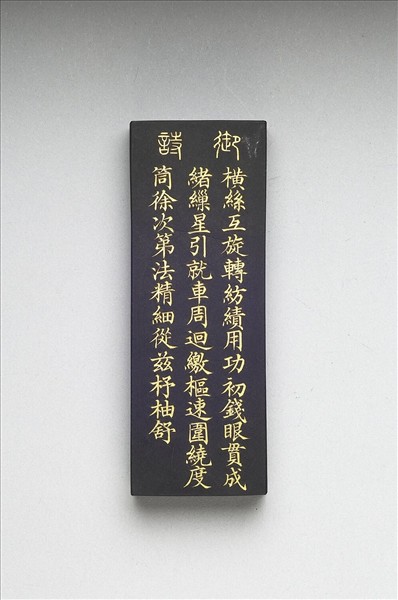 御詩
橫絲互旋轉紡績用功初錢眼貫成
緒繅星引就車周迴繳樞速圍繞度
筒徐次第法精細從茲杼柚舒